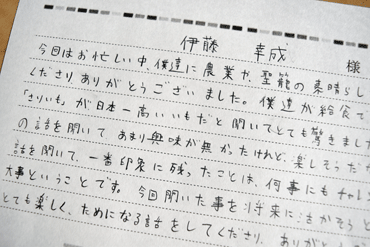 伊藤 幸成 様
今回はお忙しい中、僕達に農業や、聖籠の素晴らし
くださりありがとうございました。僕達が給食で
「さりいも」が日本一高いいもだと聞いてとても驚きまし
の話を聞いて、あまり興味が無かったけれど、楽しそうだ
話を聞いて、一番印象に残ったことは、何事にもチャレ
大事ということです。今回聞いた事を将来に活かそうと
とても楽しく、ためになる話をしてくださり、ありがと